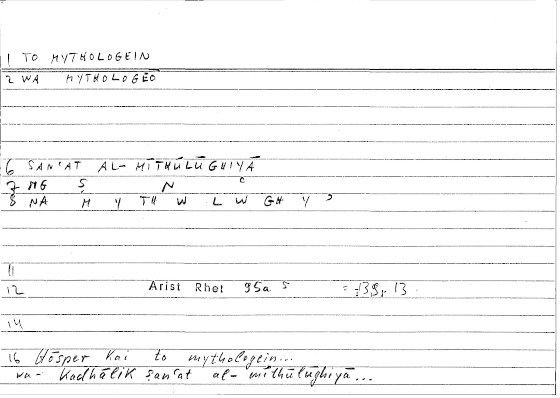 1 TO MYTHOLOGEIN
2 WA MYTHOLOGEŌ
6 ṢANʿAT AL-MĪTHŪLŪGHIYĀ
7 MG Ṣ N ʿ
8 NA M Y TH W L W GH Y ʾ
11
12 Arist Rhet 95a 5 = 139,13
14
16 Hōsper kai to mythologein...
wa-kadhālik ṣanʿat al-mīthūlūghiyā...